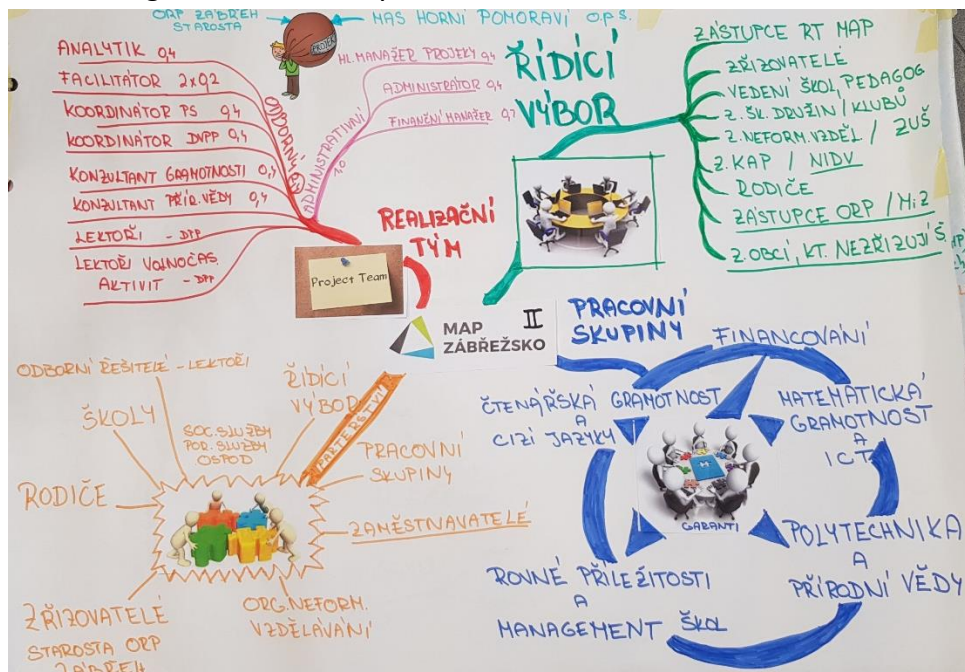 ORP ZÁBŘEH
STAROSTA
MAS HORNÍ POMORAVÍ O.P.S.
PROJEKT
ANALYTIK 0,4
FACILITÁTOR 2x0,2
KOORDINÁTOR PS 0,4
KOORDINÁTOR DVPP 0,4
KONZULTANT GRAMOTNOSTI 0,4
KONZULTANT PŘÍR. VĚDY 0,4
LEKTOŘI - DPP
LEKTOŘI VOLNOČAS.
AKTIVIT - DPP
ODBORNÍ
ADMINISTRATIVNÍ
HL. MANAŽER PROJEKTU 0,4
ADMINISTRÁTOR 0,4
FINANČNÍ MANAŽER
REALIZAČNÍ
TÝM
Project Team
ŘÍDÍCÍ
VÝBOR
ZÁSTUPCE RT MAP
ZŘIZOVATELÉ
VEDENÍ ŠKOL, PEDAGOG
Z. ŠK. DRUŽIN / KLUBŮ
Z. NEFORM. VZDĚL / ZUŠ
Z. KAP / NIDV
RODIČE
ZÁSTUPCE ORP / MiZ
Z. OBCÍ, KT. NEZŘIZUJÍ Š.
MAP II
ZÁBŘEŽSKO
PRACOVNÍ
SKUPINY
FINANCOVÁNÍ
ČTENÁŘSKÁ GRAMOTNOST
A
CIZÍ JAZYKY
MATEMATICKÁ
GRAMOTNOST
A
ICT
GARANTI
POLYTECHNIKA
A
PŘÍRODNÍ VĚDY
ROVNÉ PŘÍLEŽITOSTI
A
MANAGEMENT ŠKOL
PARTERSTVÍ
ODBORNÍ ŘEŠITELÉ - LEKTOŘI
ŘÍDÍCÍ
VÝBOR
ŠKOLY
SOC. SLUŽBY
POR. SLUŽBY
OSPOD
PRACOVNÍ
SKUPINY
RODIČE
ZAMĚSTNAVATELÉ
ZŘIZOVATELÉ
STAROSTA ORP
ZÁBŘEH
ORG. NEFORM.
VZDĚLÁVÁNÍ